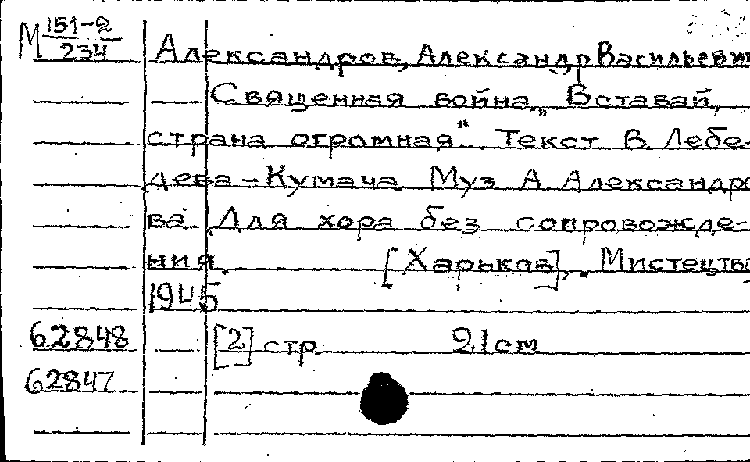 М 151-2
234
Александров, Александр Васильевич
Священная война. „Вставай,
страна огромная". Текст В. Лебе-
дева-Кумача. Муз. А. Александро
ва. Для хора без сопровожде-
ния. [Харьков], „Мистецтво
1945
62848 [2] стр. 21 см
62847